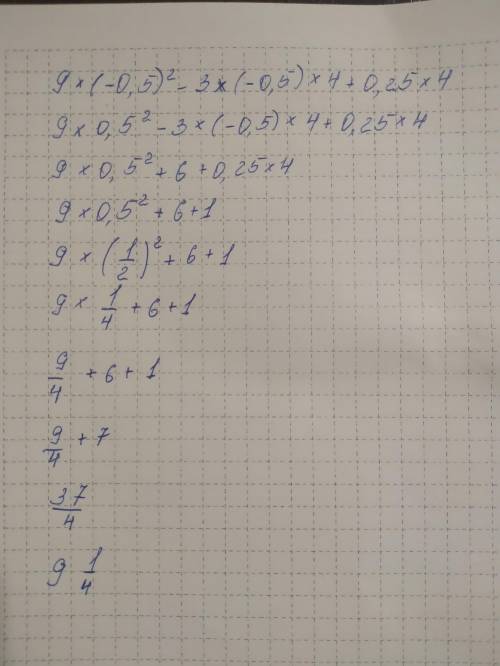 9 × (-0,5)² - 3 × (-0,5) × 4 + 0,25 × 4
9 × 0,5² - 3 × (-0,5) × 4 + 0,25 × 4
9 × 0,5² + 6 + 0,25 × 4
9 × 0,5² + 6 + 1
9 × (1/2)² + 6 + 1
9 × 1/4 + 6 + 1
9/4 + 6 + 1
9/4 + 7
37/4
9 1/4